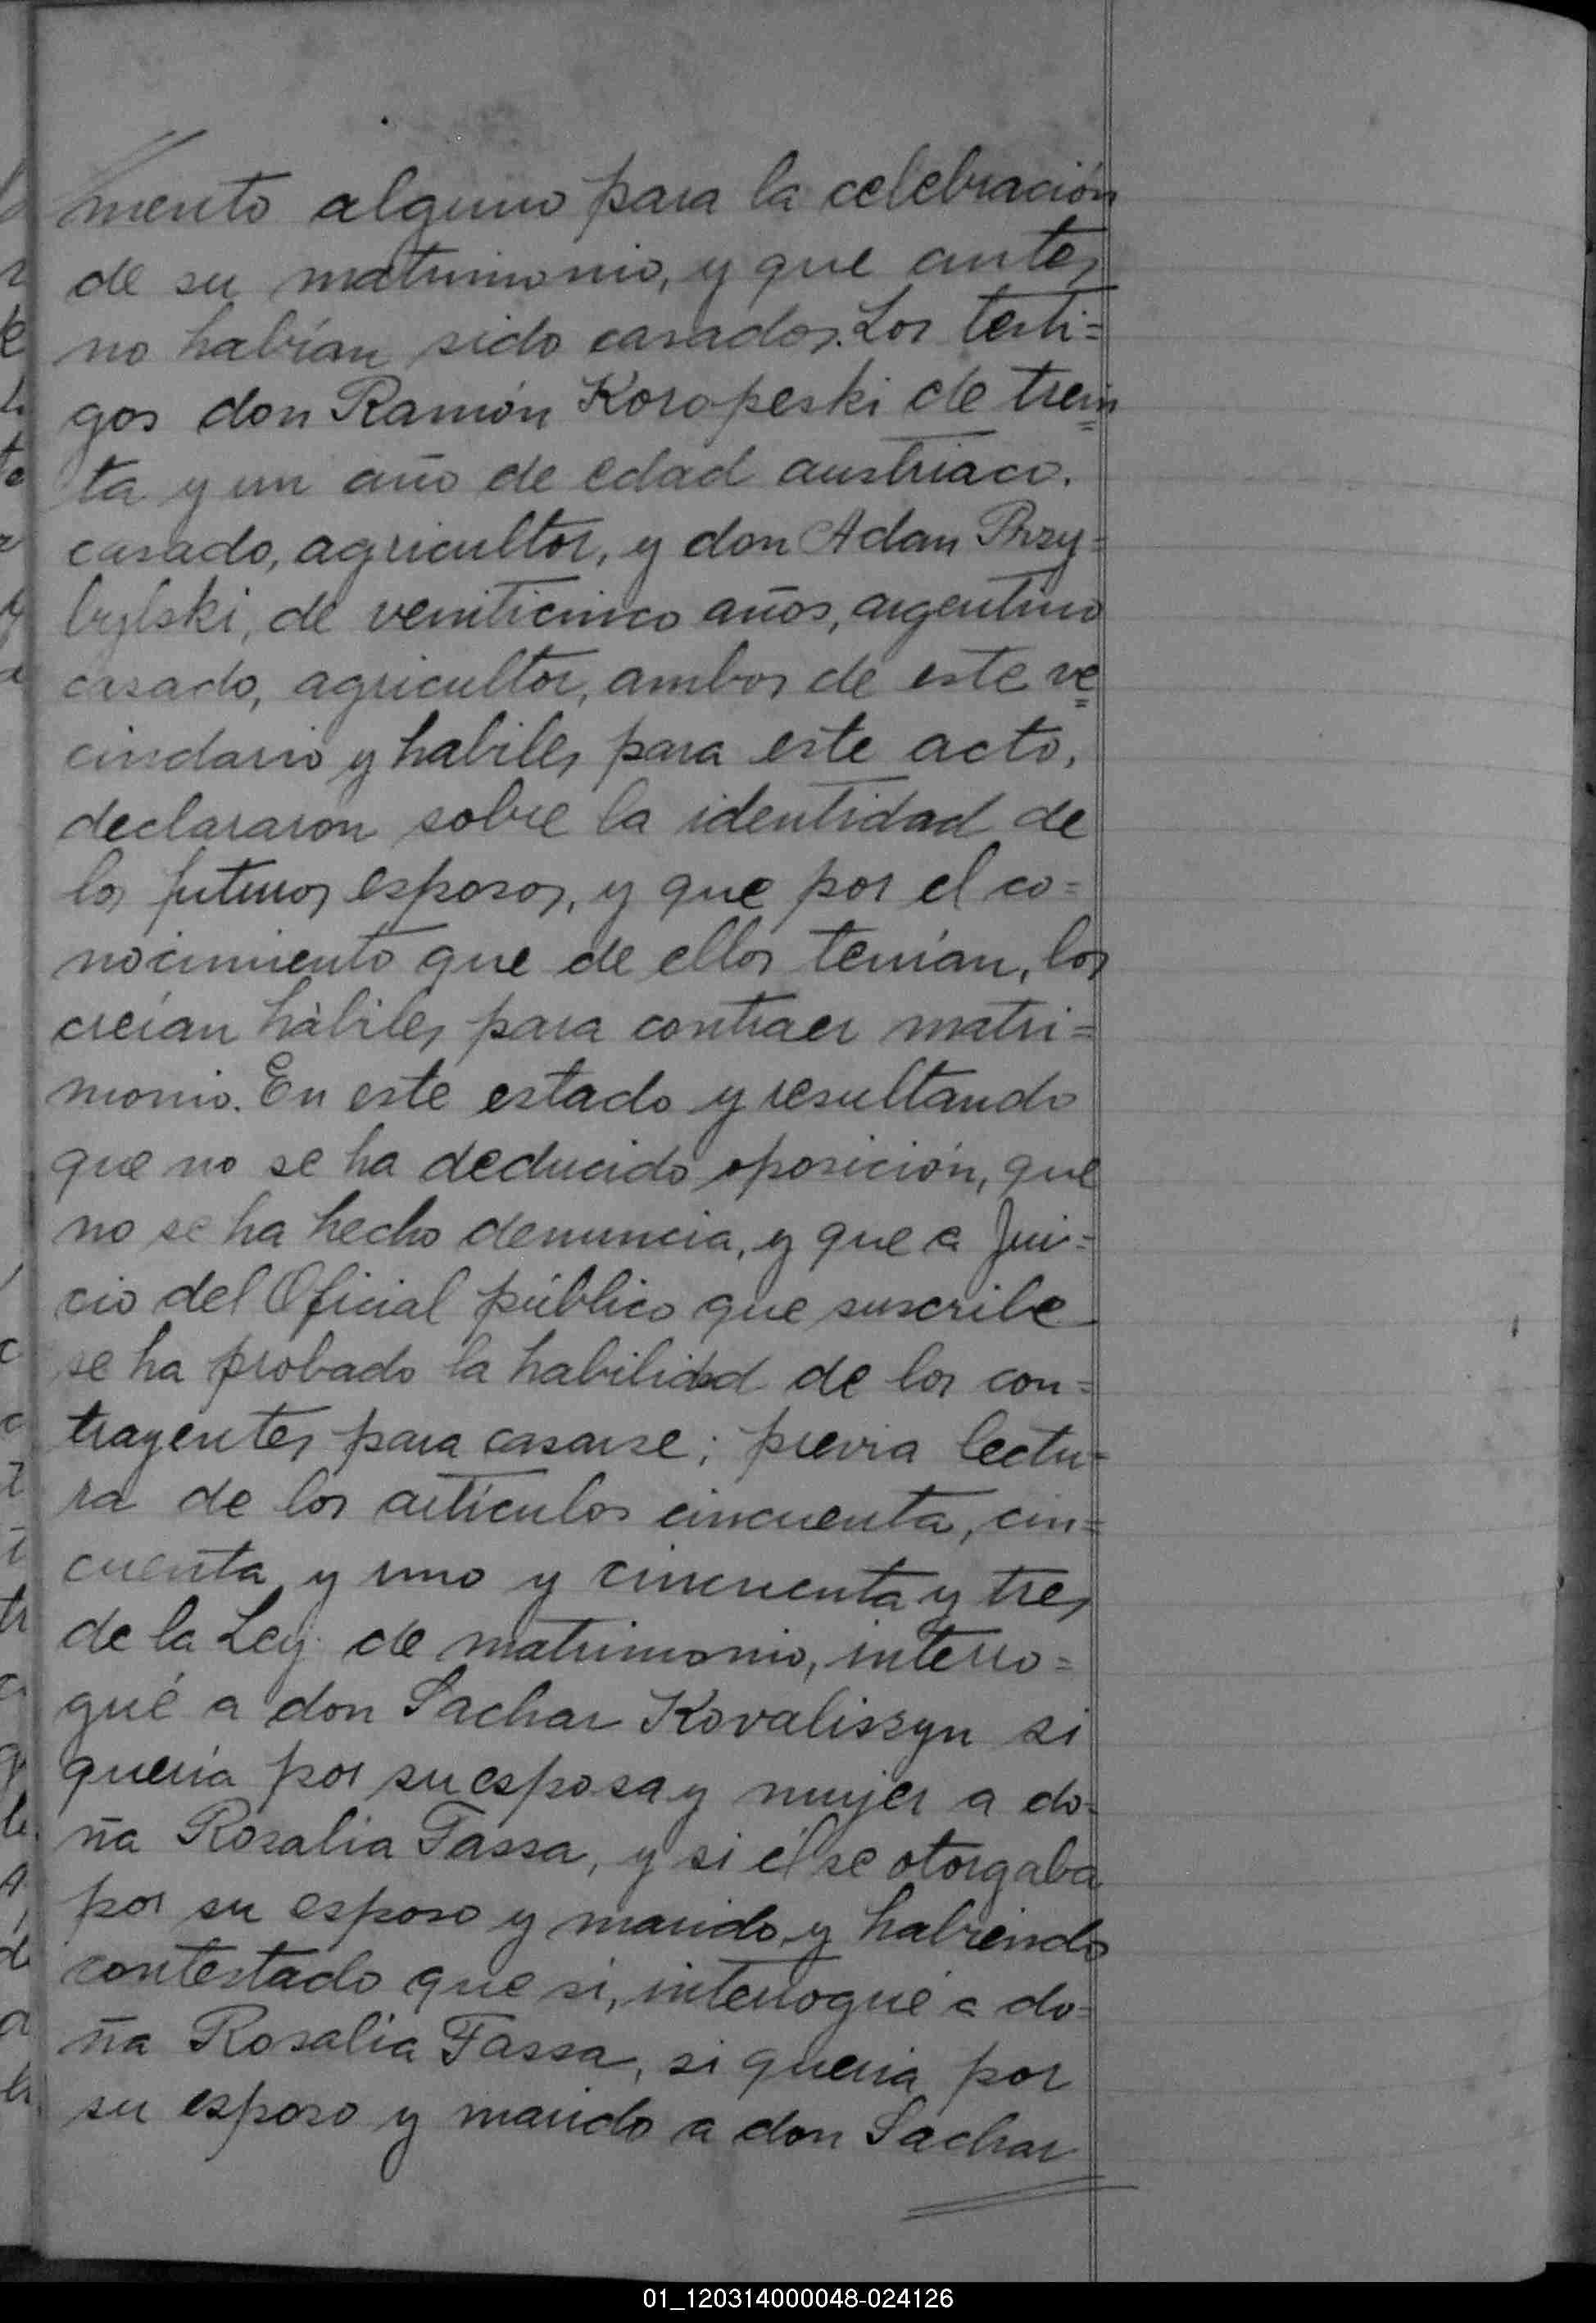 mento alguno para la celebración
de su matrimonio, y que antes
no habían sido casados. Los testi=
gos don Ramón Koropeski de trein=
ta y un año de edad austriaco.
casado, agricultor, y don Adan Przy=
bylski, de veniticinco años, argentino
casado, agricultor, ambos de este ve=
cindario y habiles para este acto,
declararon sobre la identidad de
los futuros esposos, y que por el co=
nocimiento que de ellos tenían, los
creían hàbiles para contraer matri=
monio. En este estado y resultando
que no se ha deducido oposición, que
no se ha hecho denuncia, y que a Jui=
cio del Oficial público que suscribe
se ha probado la habilidad de los con=
trayentes para casarse; previa lectu=
ra de los artículos cincuenta, cin=
cuenta y uno y cincuenta y tres
de la Ley de matrimonio, interro=
gué a don Sachar Kovaliszyn si
quería por su esposa y mujer a do=
ña Rosalia Tassa, y si él se otorgaba
por su esposo y marido, y habiendo
contestado que si, interrogué a do=
ña Rosalia Tassa, si queria por
su esposo y marido a don Sachar
01_120314000048-024126